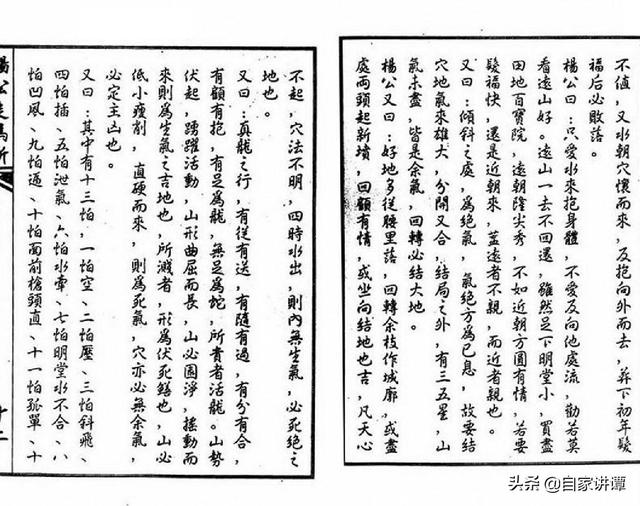 不值，又水朝穴懷而來，及抱向外而去，葬下初年髮
福后必敗落。
楊公曰：只愛水來抱身體，不愛反向他處流，勸君莫
看遠山好。遠山一去不回還，雖然足下明堂小，買盡
田地百寶院，遠朝隆尖秀，不如近朝方圓有情，若要
髮福快，還是近朝來，蓋遠者不親，而近者親也。
又曰：傾斜之處，為絕氣，氣絕方為已息，故要結
穴地氣來雄大，分開又合，結局之外，有三五星，山
氣未盡，皆是余氣，回轉必結大地。
楊公又曰：好地多從腰里落，回轉余枝作城廓，或盡
處兩頭起新墳，回顧有情，或坐向結地也吉，凡天心
不起，穴法不明，四時水出，則內無生氣，必死絕之
地也。
又曰：真龍之行，有從有送，有隨有過，有分有合，
有顧有抱，有足為龍，無足為蛇，所貴者活龍。山勢
伏起，踴躍活動，山形曲屈而長，山必園淨，搖動而
來則為生氣之吉地也，所濺者，形為伏死鱔也，山必
低小瘦削，直硬而來，則為死氣，穴亦必無余氣，
必定主凶也。
又曰：其中有十三怕，一怕空、二怕壓、三怕斜飛、
四怕插、五怕泄氣、六怕水牽、七怕明堂水不合、八
怕凹風、九怕逼、十怕面前槍頭直、十一怕孤單、十
十二
头条 @自家讲谭